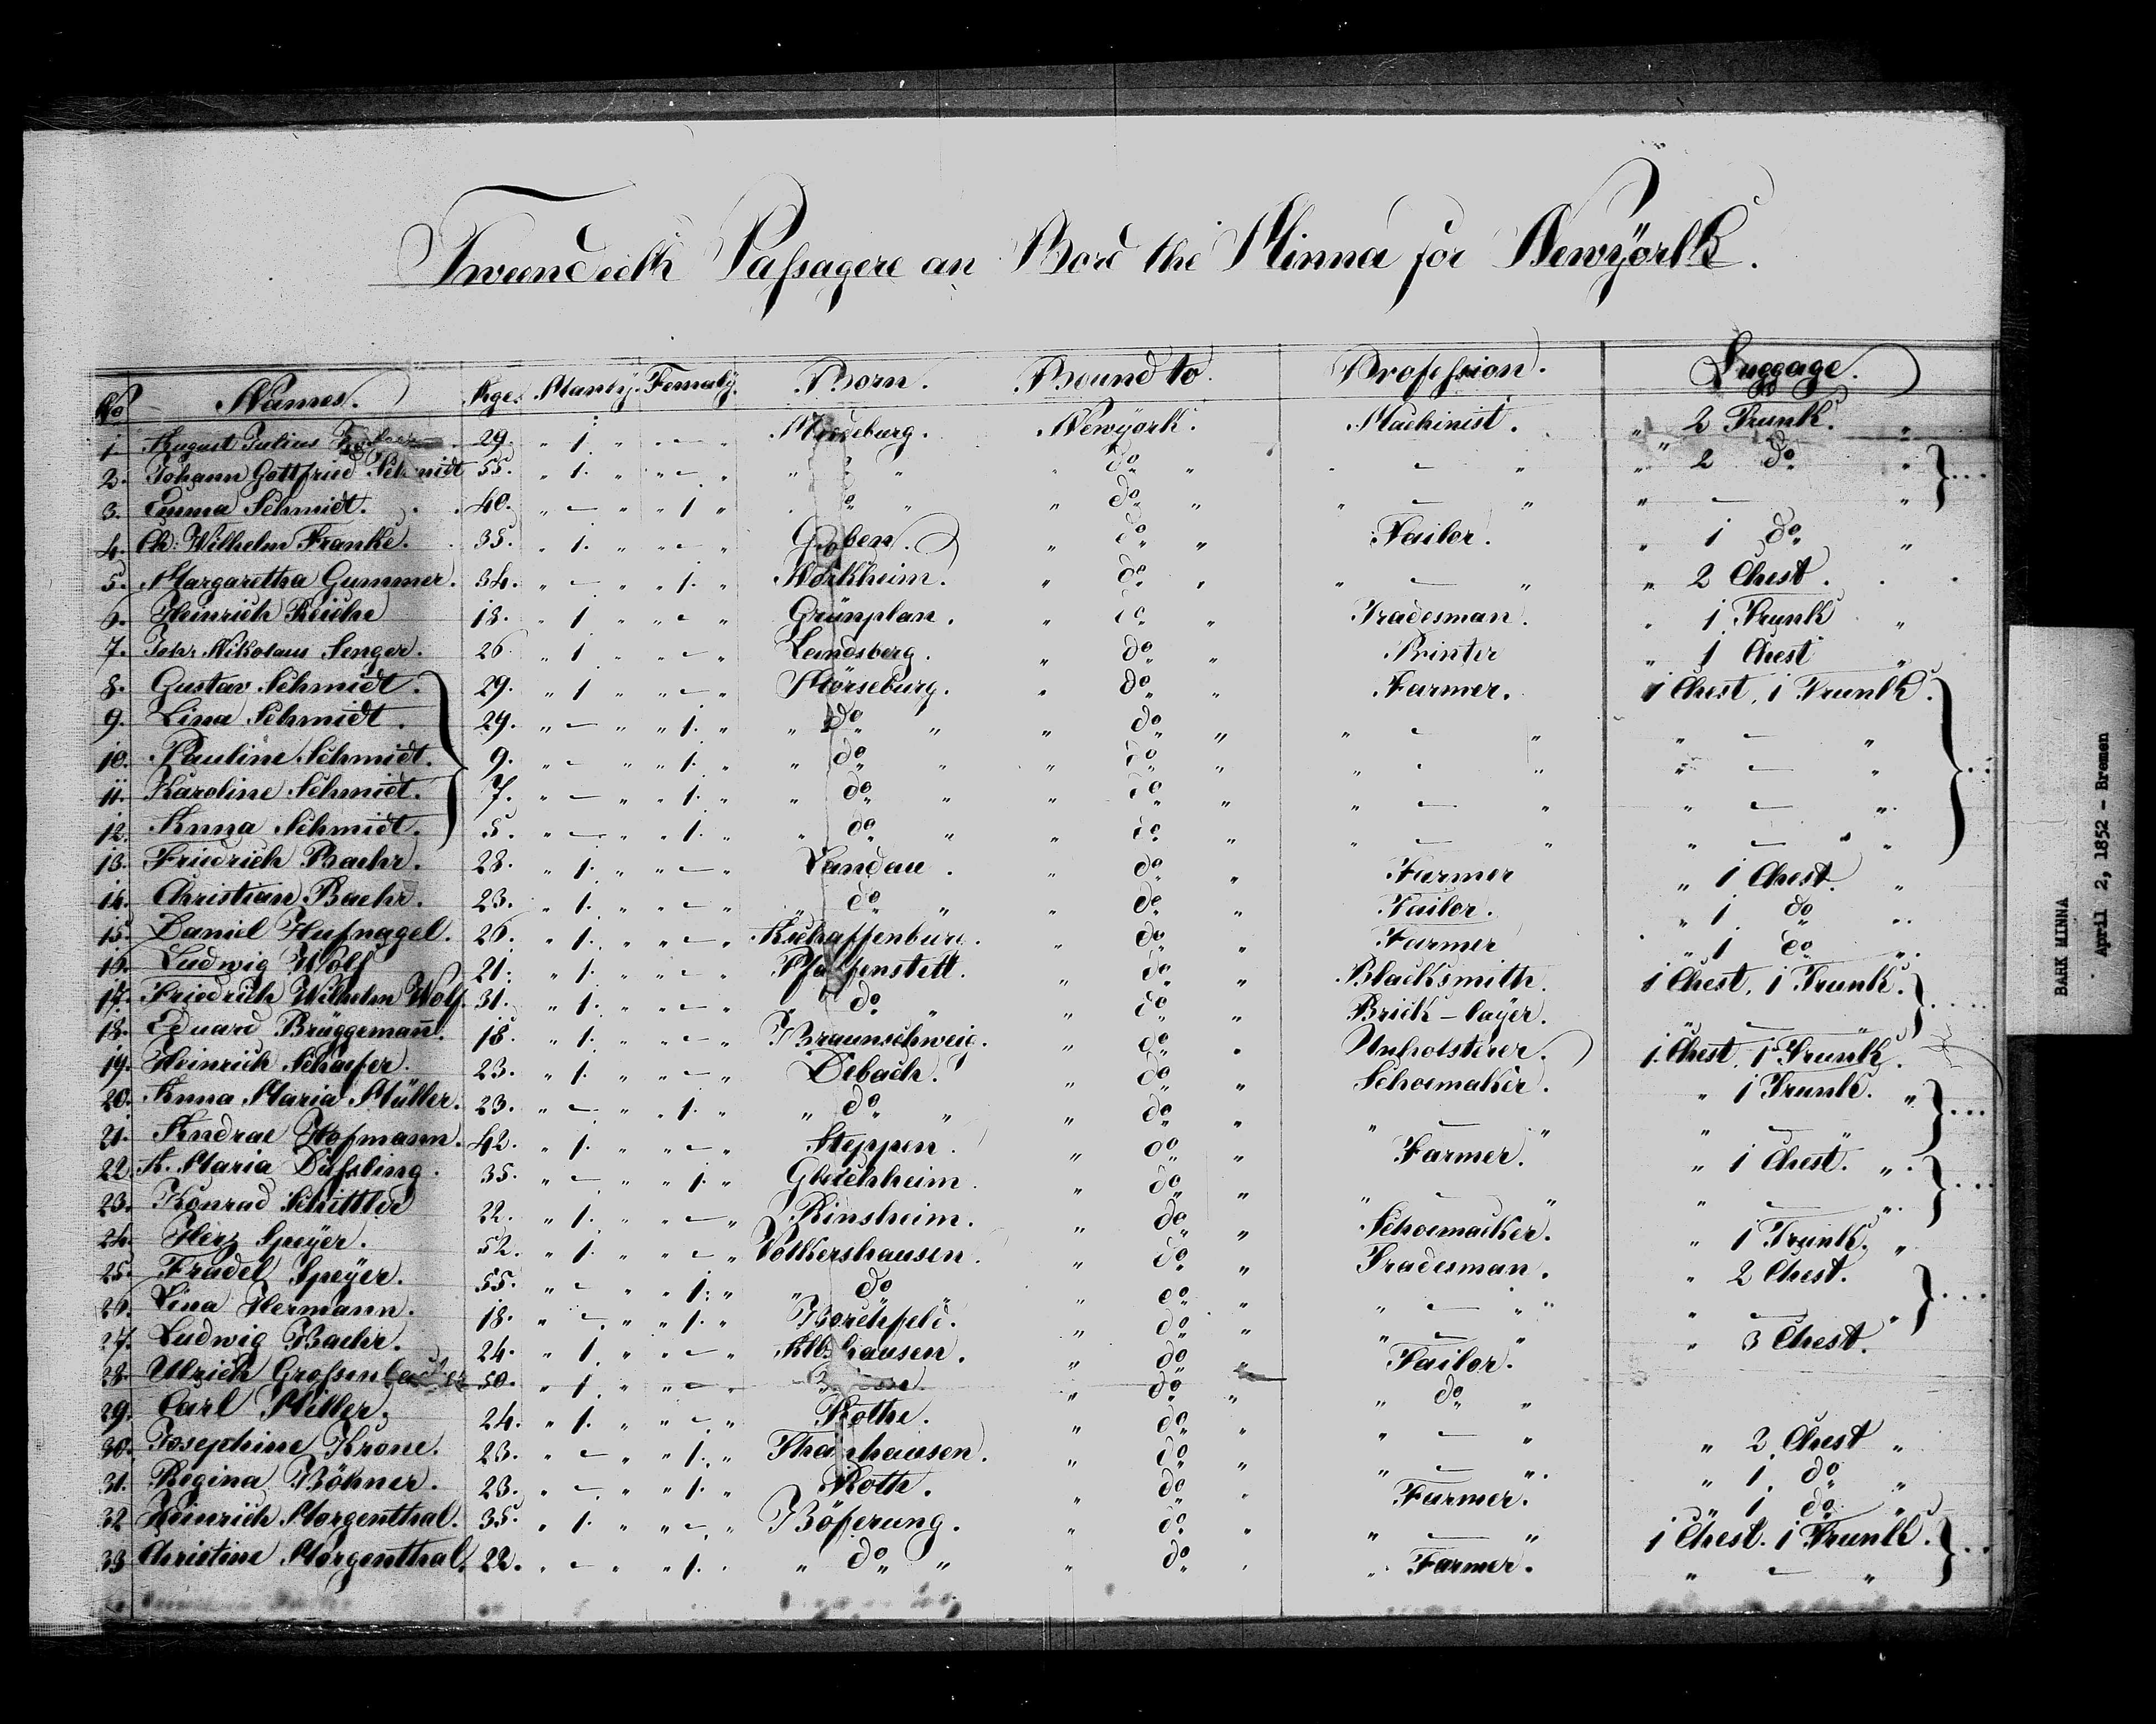 Twundeeth Passagere an Bord the Minna for Newÿork.
No Names. Age. Manly. Femaly. Born. Bound to. Profession. Luggage.
1. August Julius 29. " 1. " " — " Newÿork. Machinist. " 2 Trunk. "
2. Johann Gottfried Schmidt 55. " 1. " " — " " " do " " — " " 2 do "
3. Emma Schmidt. 40. " — " " 1 " " do " " do " " — " " — "
4. Ch: Wilhelm Franke. 35. " 1. " " — " Goben. " do " Tailor. " 1 do "
5. Margaretha Gummer. 34. " — " " 1. " Horkheim. " do " " — " " 2 Chest.
6. Heinrich Reiche 18. " 1 " " — " Grünplan. " do " Tradesman. " 1 Trunk "
7. Joh. Nikolaus Senger. 26. " 1 " " — " Landsberg. " do " Printer " 1 Chest "
8. Gustav Schmidt. 29. " 1 " " — " Mörseburg. " do " Farmer. 1 Chest, 1 Trunk.
9. Lina Schmidt. 29. " — " " 1. " " do " " do " " — " " — "
10. Pauline Schmidt. 9. " — " " 1. " " do " " do " " — " " — "
11. Karoline Schmidt. 7. " — " " 1. " " do " " do " " — " " — "
12. Anna Schmidt. 5. " — " " 1. " " do " " do " " — " " — "
13. Friedrich Baehr. 28. " 1. " " — " Landau. " do " Farmer " 1 Chest. "
14. Christian Baehr. 23. " 1. " " — " " do " " do " Tailor. " 1 do "
15. Daniel Hufnagel. 26. " 1. " " — " Aschaffenburg. " do " Farmer " 1 do "
16. Ludwig Wolf 21. " 1. " " — " Pfaffenstett. " do " Blacksmith. 1 Chest, 1 Trunk.
17. Friedrich Wilhelm Wolf. 31. " 1. " " — " do " " do " Brick-layer. " — "
18. Eduard Brüggemann. 18. " 1. " " — " Braunschweig. " do " Unholsterer. 1 Chest, 1 Trunk.
19. Heinrich Schaefer. 23. " 1. " " — " Debach. " do " Schoemaker. " 1 Trunk. "
20. Anna Maria Müller. 23. " — " " 1. " " do " " do " " — " " — "
21. Andrae Hofmann. 42. " 1. " " — " Steppen. " do " Farmer. " 1 Chest. "
22. A. Maria Dussling. 35. " — " " 1. " Gleichheim. " do " " — " " — "
23. Konrad Schittler 22. " 1. " " — " Rinsheim. " do " Schoemacker. " 1 Trunk. "
24. Herz Speÿer. 52. " 1. " " — " Volkershausen. " do " Tradesman. " 2 Chest.
25. Fradel Speÿer. 55. " — " " 1. " " do " " do " " — " " — "
26. Lina Hermann. 18. " — " " 1. " Borchfeld. " do " " — " " 3 Chest.
27. Ludwig Baehr. 24. " 1 " " — " hausen. " do " Tailor.
28. Ulrich Grossenbacher 50. " 1 " " — " " do " " do "
29. Carl Miller. 24. " 1. " " — " Rothe. " do " " — " " 2 Chest "
30. Josephine Krone. 23. " — " " 1. " Thanhausen. " do " " — " " 1 do "
31. Regina Böhner. 23. " — " " 1. " Roth. " do " Farmer. " 1 do "
32 Heinrich Morgenthal. 35. " 1. " " — " Böserung. " do " " — " 1 Chest. 1 Trunk.
33 Christine Morgenthal. 22. " — " " 1. " " do " " do " " Farmer. " — "
BARK MINNA
April 2, 1852 - Bremen